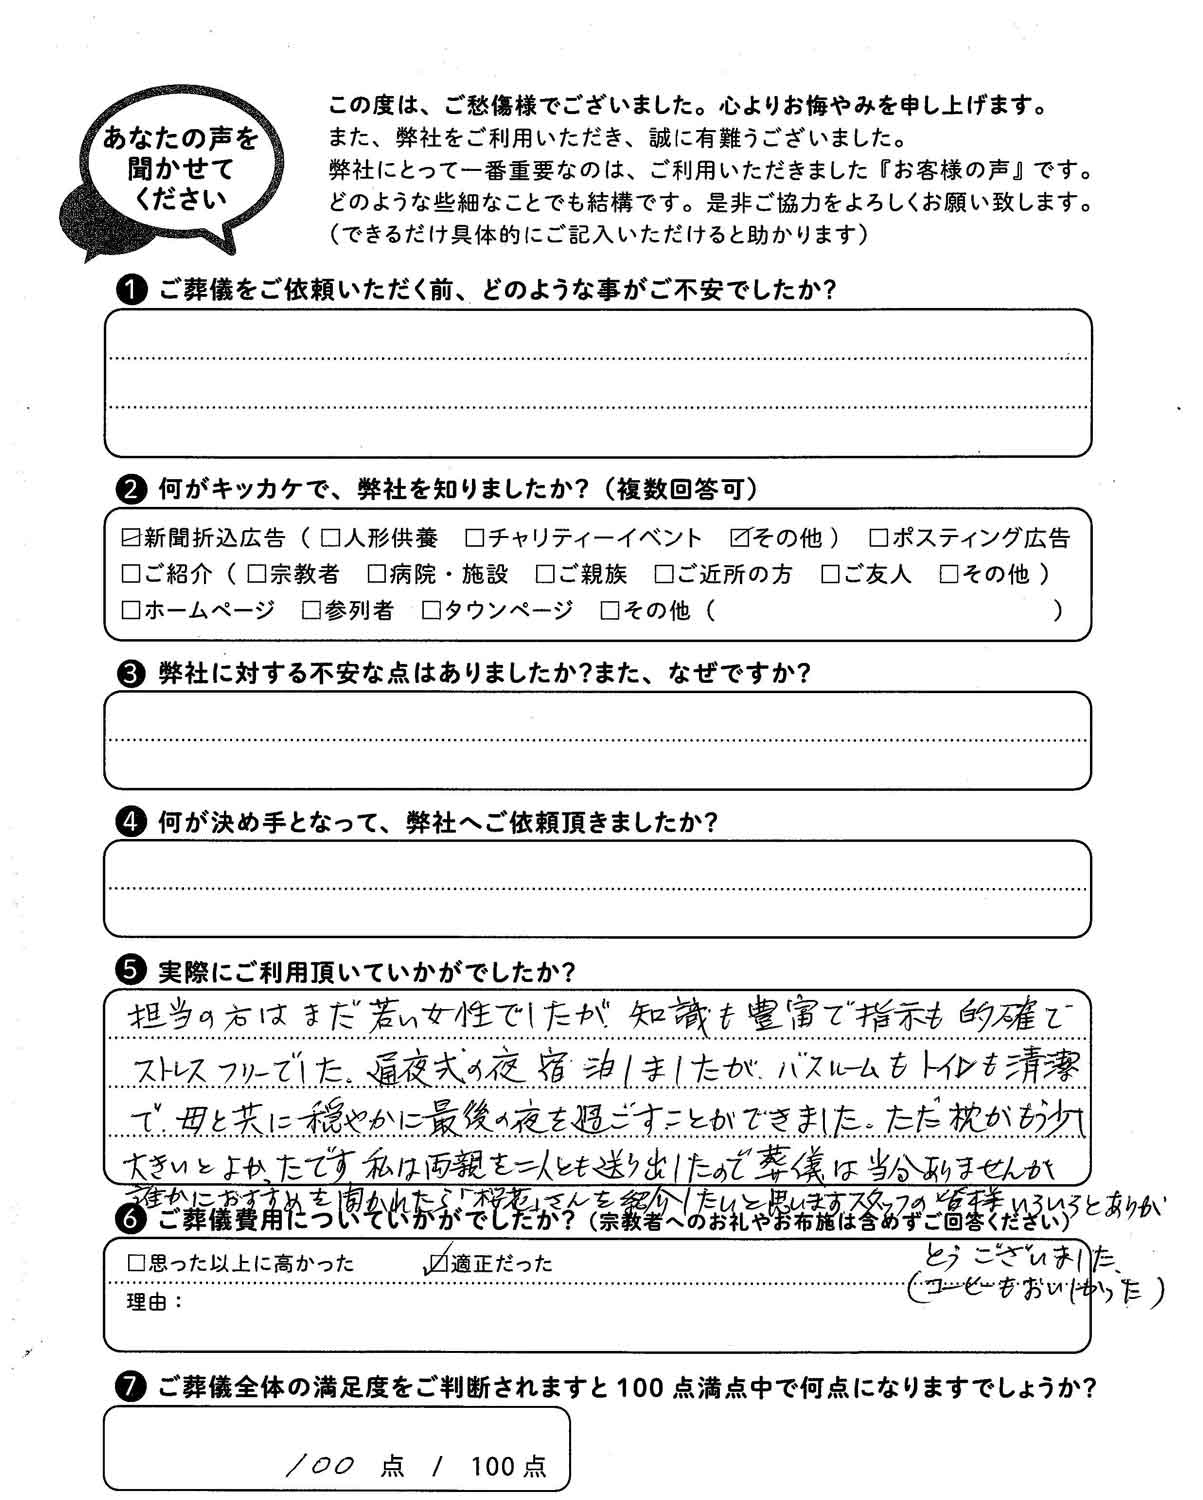 あなたの声を
聞かせて
ください
この度は、ご愁傷様でございました。心よりお悔やみを申し上げます。
また、弊社をご利用いただき、誠に有難うございました。
弊社にとって一番重要なのは、ご利用いただきました『お客様の声』です。
どのような些細なことでも結構です。是非ご協力をよろしくお願い致します。
（できるだけ具体的にご記入いただけると助かります）
❶ ご葬儀をご依頼いただく前、どのような事がご不安でしたか?
❷ 何がキッカケで、弊社を知りましたか?（複数回答可）
☑新聞折込広告（ □人形供養 □チャリティーイベント ☑その他 ） □ポスティング広告
□ご紹介（ □宗教者 □病院・施設 □ご親族 □ご近所の方 □ご友人 □その他 ）
□ホームページ □参列者 □タウンページ □その他（ ）
❸ 弊社に対する不安な点はありましたか?また、なぜですか?
❹ 何が決め手となって、弊社へご依頼頂きましたか?
❺ 実際にご利用頂いていかがでしたか?
担当の方はまだ若い女性でしたが、知識も豊富で指示も的確で
ストレスフリーでした。通夜式の夜宿泊しましたが、バスルームもトイレも清潔
で、母と共に穏やかに最後の夜を過ごすことができました。ただ枕がもう少し
大きいとよかったです 私は両親を二人とも送り出したので葬儀は当分ありませんが
誰かにおすすめを聞かれたら「桜花」さんを紹介したいと思います スタッフの皆様いろいろとありが
とうございました
(コーヒーもおいしかった)
❻ ご葬儀費用についていかがでしたか?（宗教者へのお礼やお布施は含めずご回答ください）
□思った以上に高かった ☑適正だった
理由：
❼ ご葬儀全体の満足度をご判断されますと100点満点中で何点になりますでしょうか?
100 点 / 100点